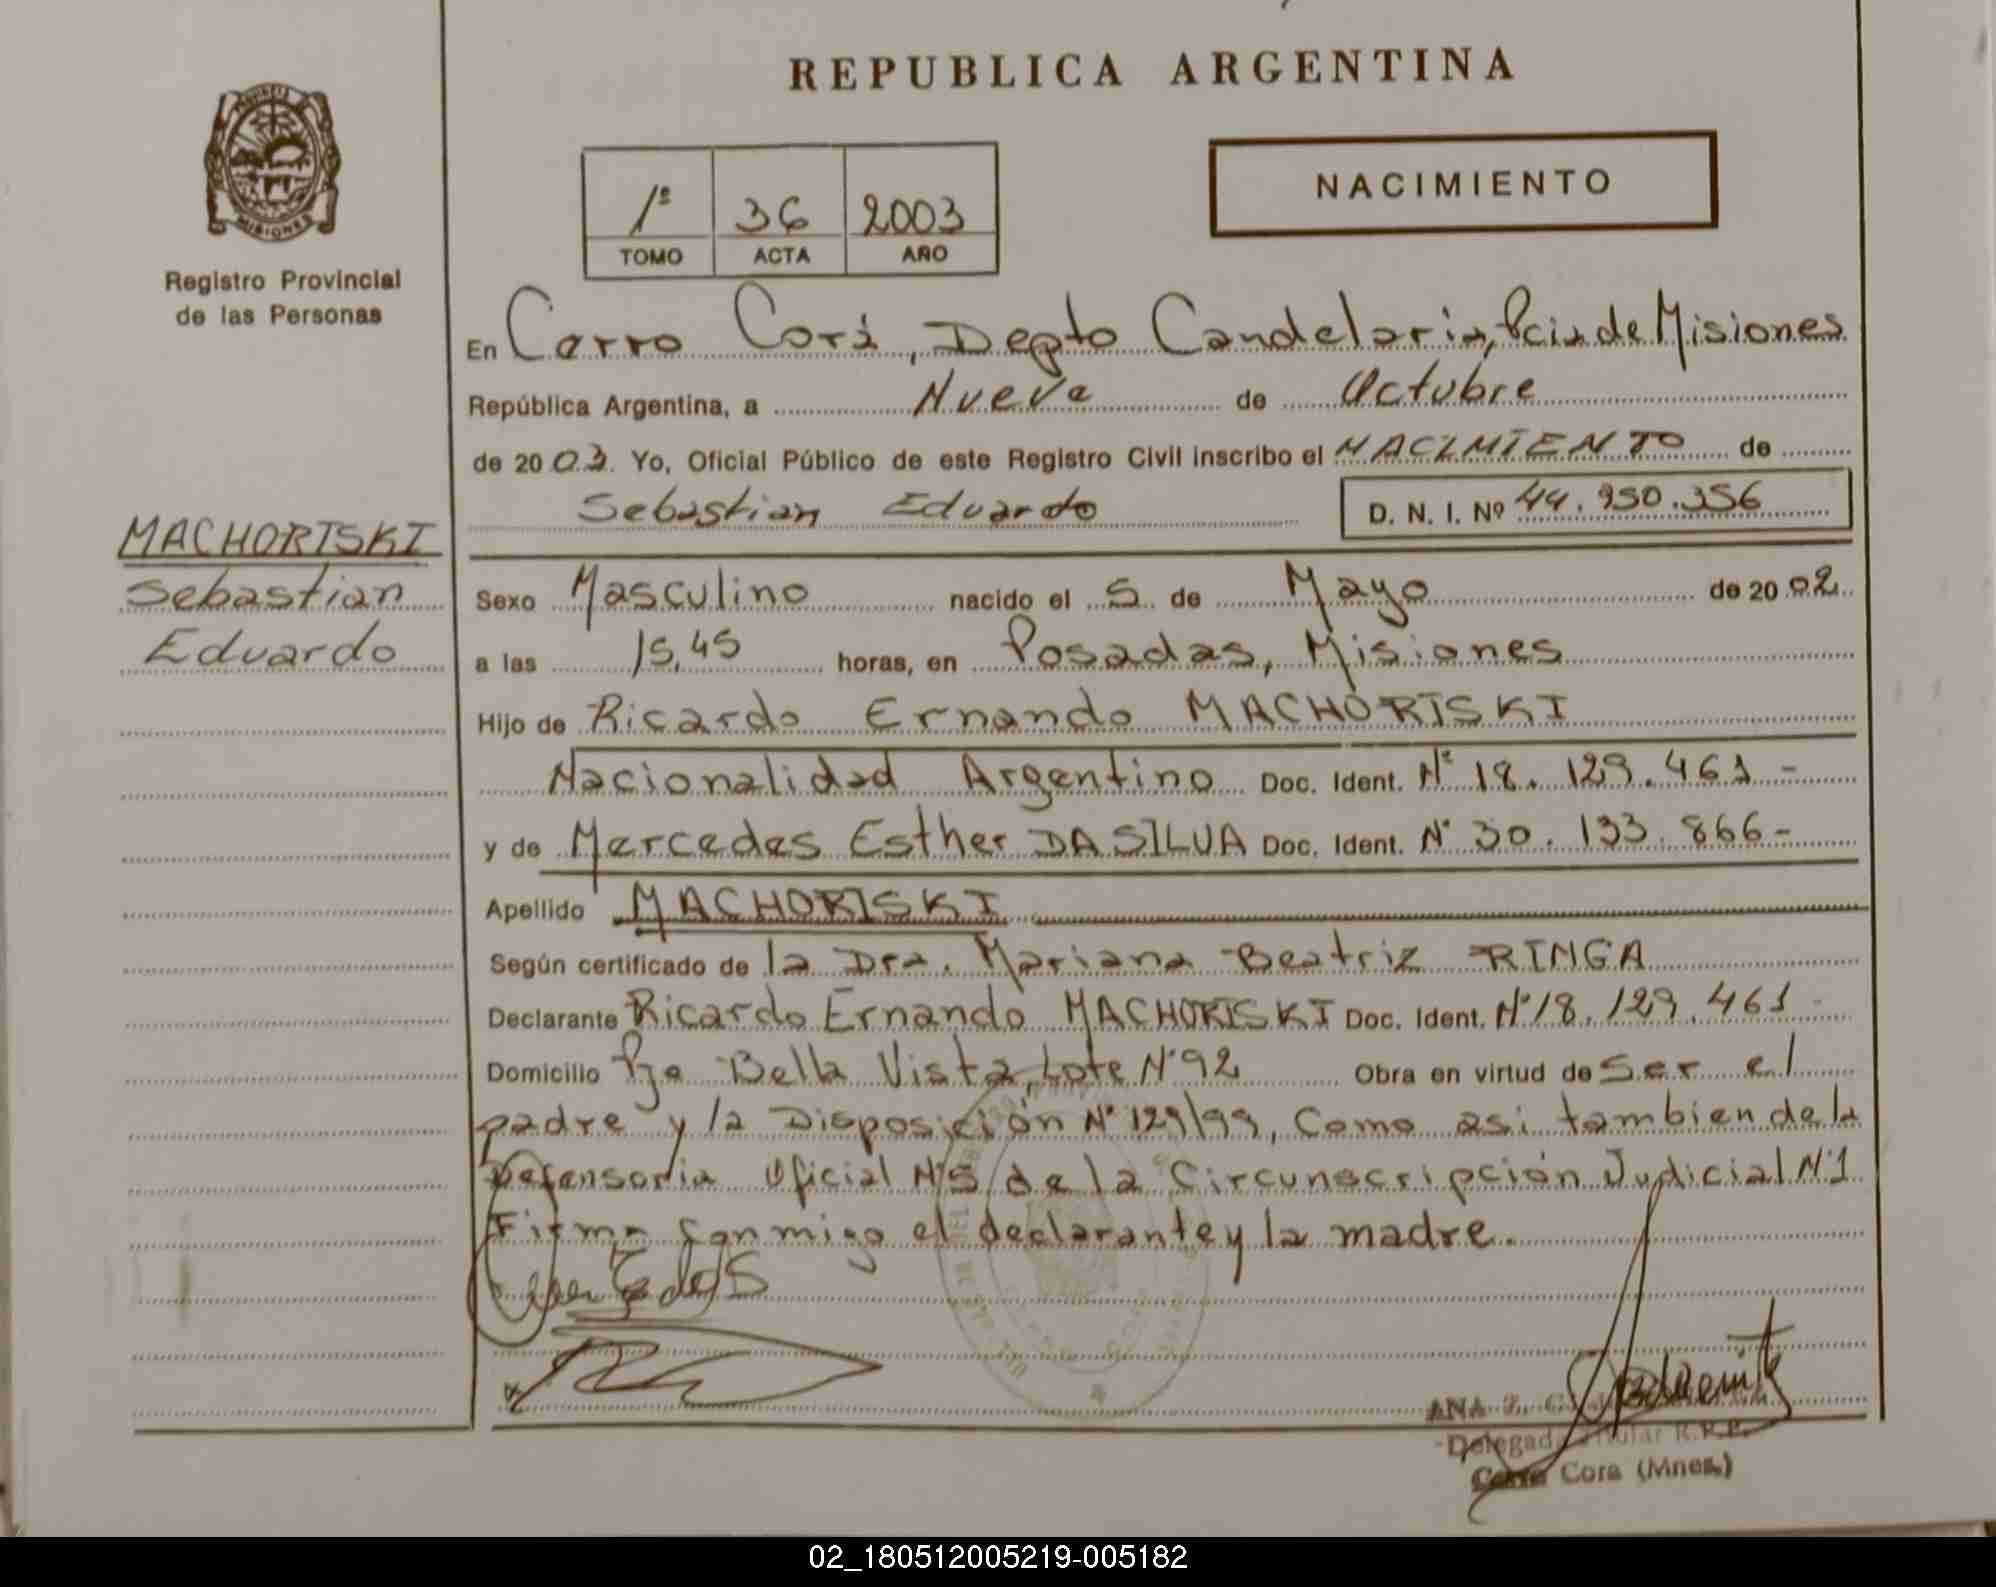 REPUBLICA ARGENTINA
MISIONES
Registro Provincial
de las Personas
NACIMIENTO
1º 36 2003
TOMO ACTA AÑO
En Cerro Corá, Depto Candelaria, Pcia de Misiones
República Argentina, a Nueve de Octubre
de 2003. Yo, Oficial Público de este Registro Civil inscribo el NACIMIENTO de
Sebastian Eduardo D. N. I. Nº 44.950.356
MACHORISKI
Sebastian
Eduardo
Sexo Masculino nacido el 5 de Mayo de 2002
a las 15,45 horas, en Posadas, Misiones
Hijo de Ricardo Ernando MACHORISKI
Nacionalidad Argentino Doc. Ident. Nº 18.129.461-
y de Mercedes Esther DA SILVA Doc. Ident. Nº 30.133.866-
Apellido MACHORISKI
Según certificado de la Dra. Mariana Beatriz RINGA
Declarante Ricardo Ernando MACHORISKI Doc. Ident. Nº 18.129.461-
Domicilio Pje Bella Vista, Lote Nº 92 Obra en virtud de Ser el
padre y la Disposición Nº 129/99, Como asi tambien de la
Defensoria Oficial Nº5 de la Circunscripción Judicial Nº1
Firma conmigo el declarante y la madre.
ANA
Delegada Titular R.P.P.
Cerro Cora (Mnes.)
02_180512005219-005182